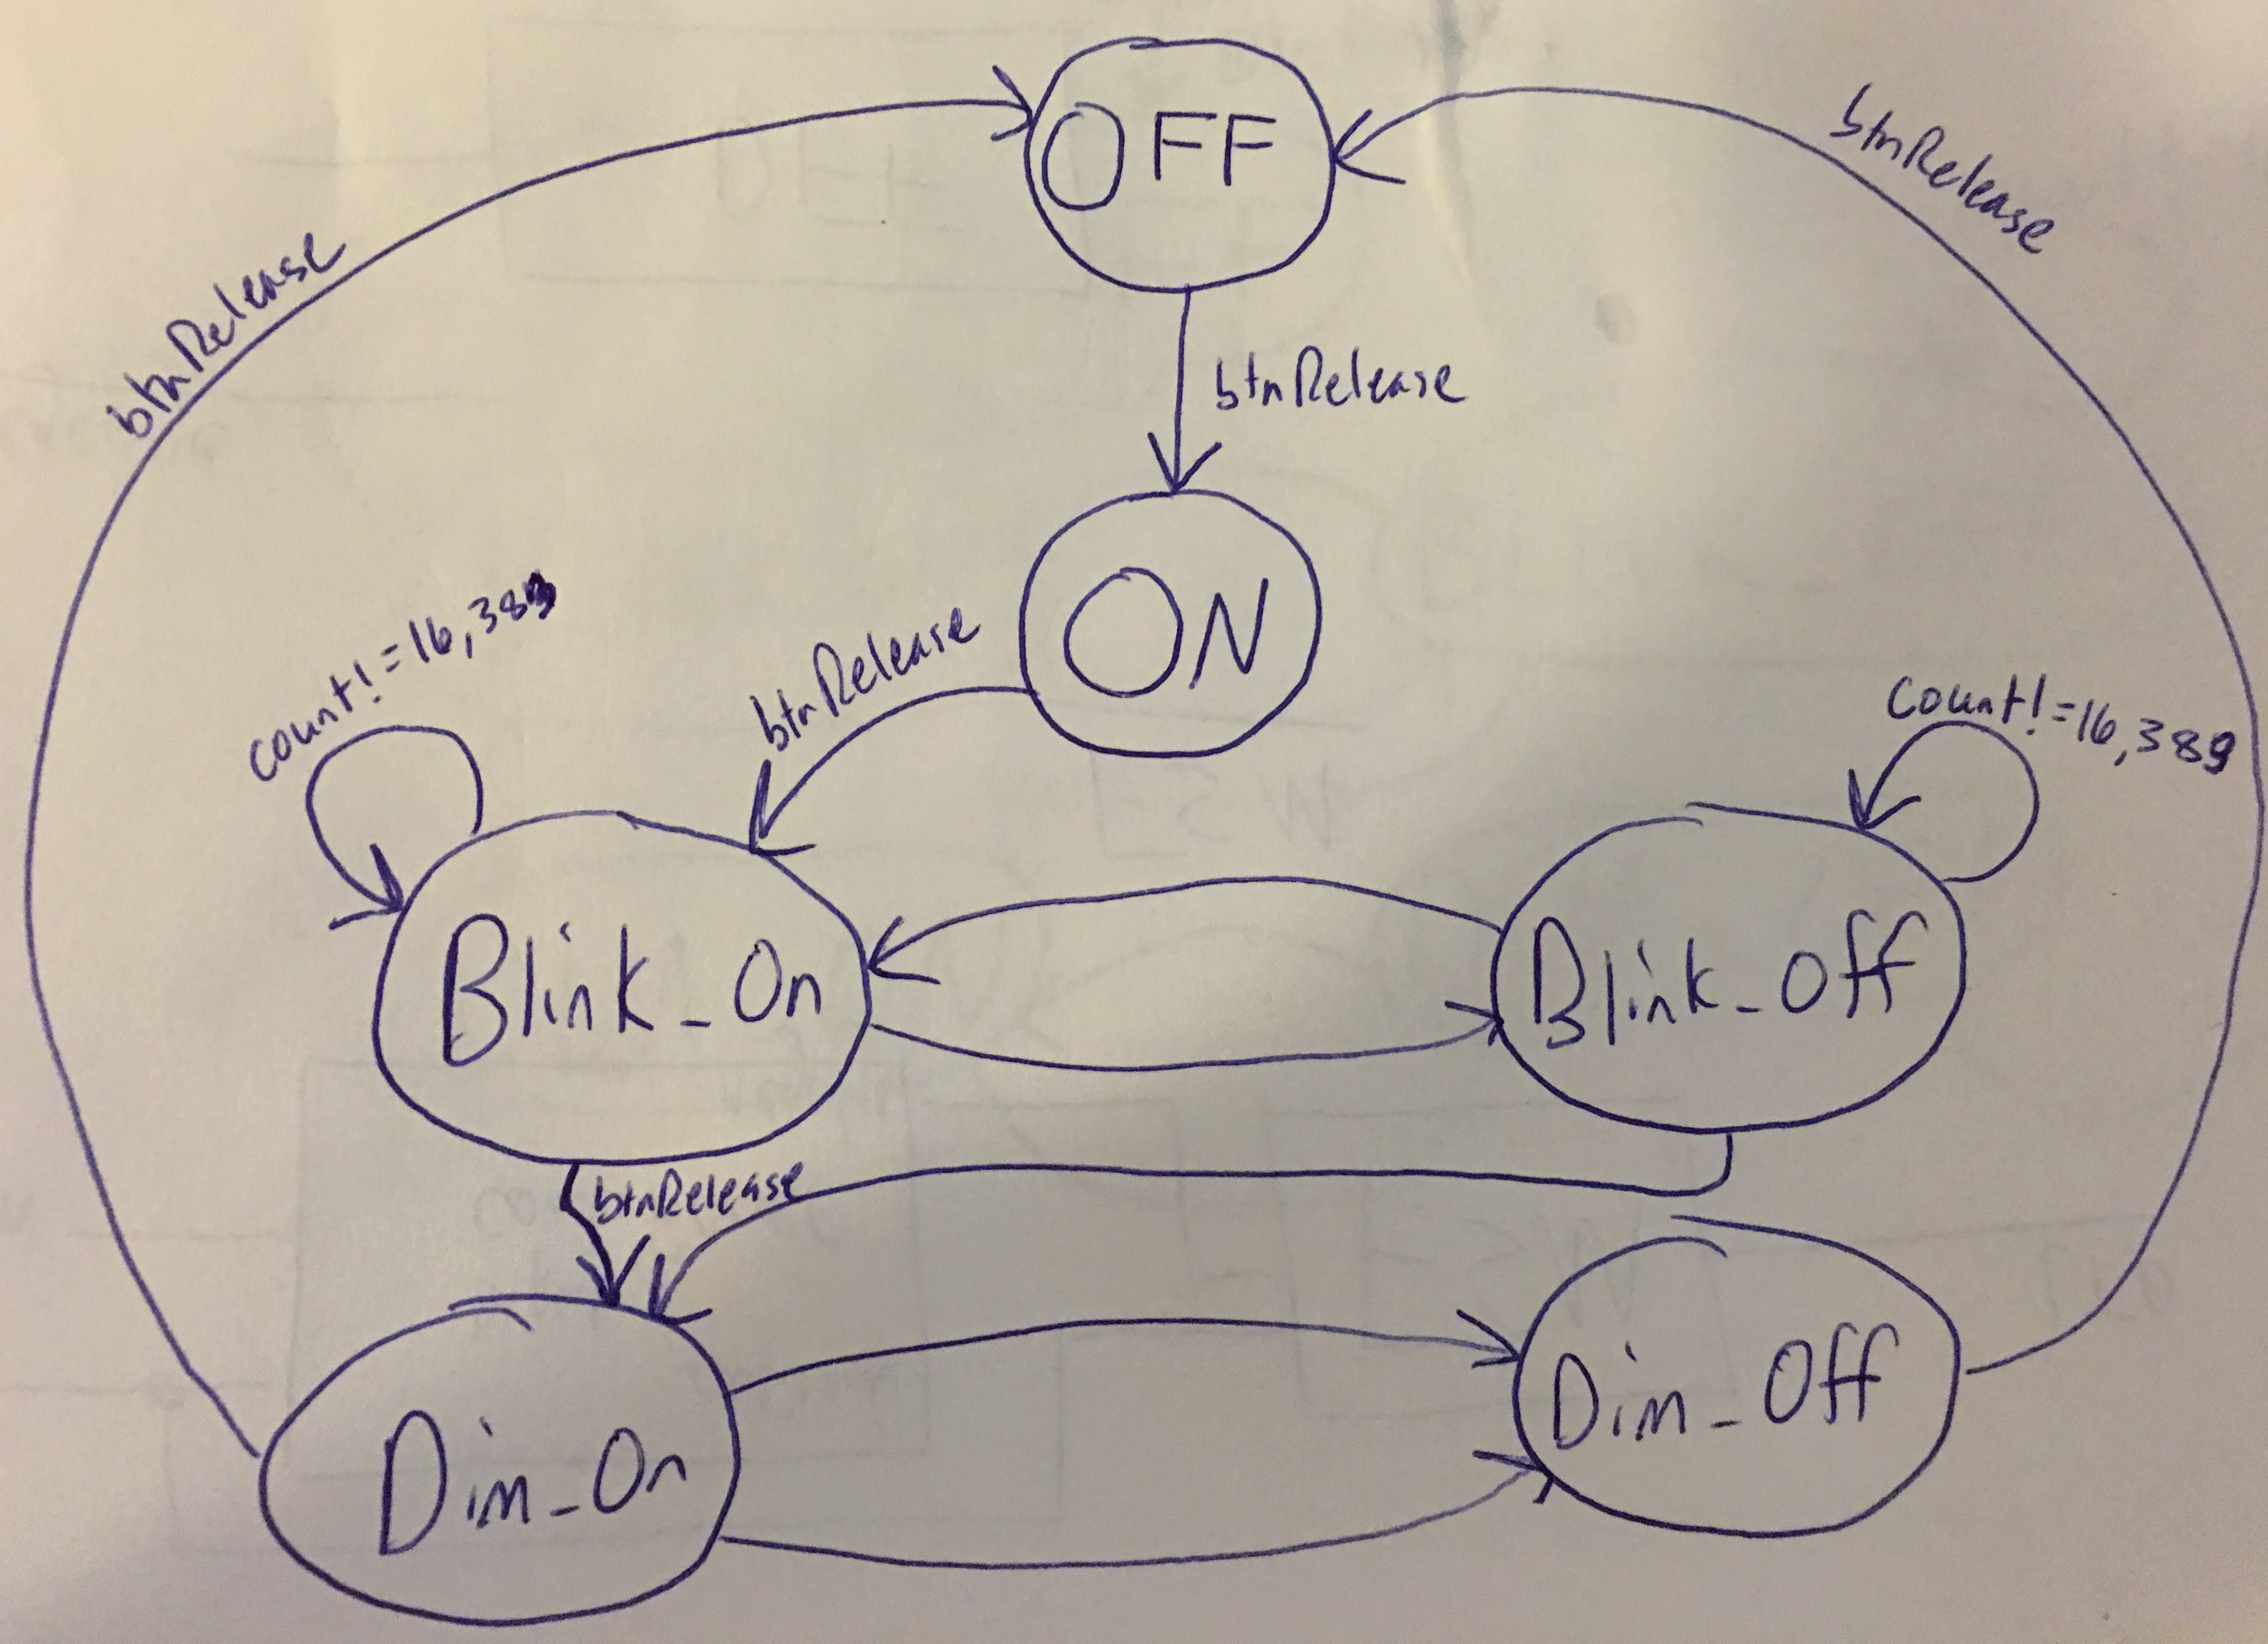 OFF
btnRelease
btnRelease
btnRelease
ON
btnRelease
count!=16,383
count!=16,383
Blink_On
Blink_Off
btnRelease
Dim_On
Dim_Off